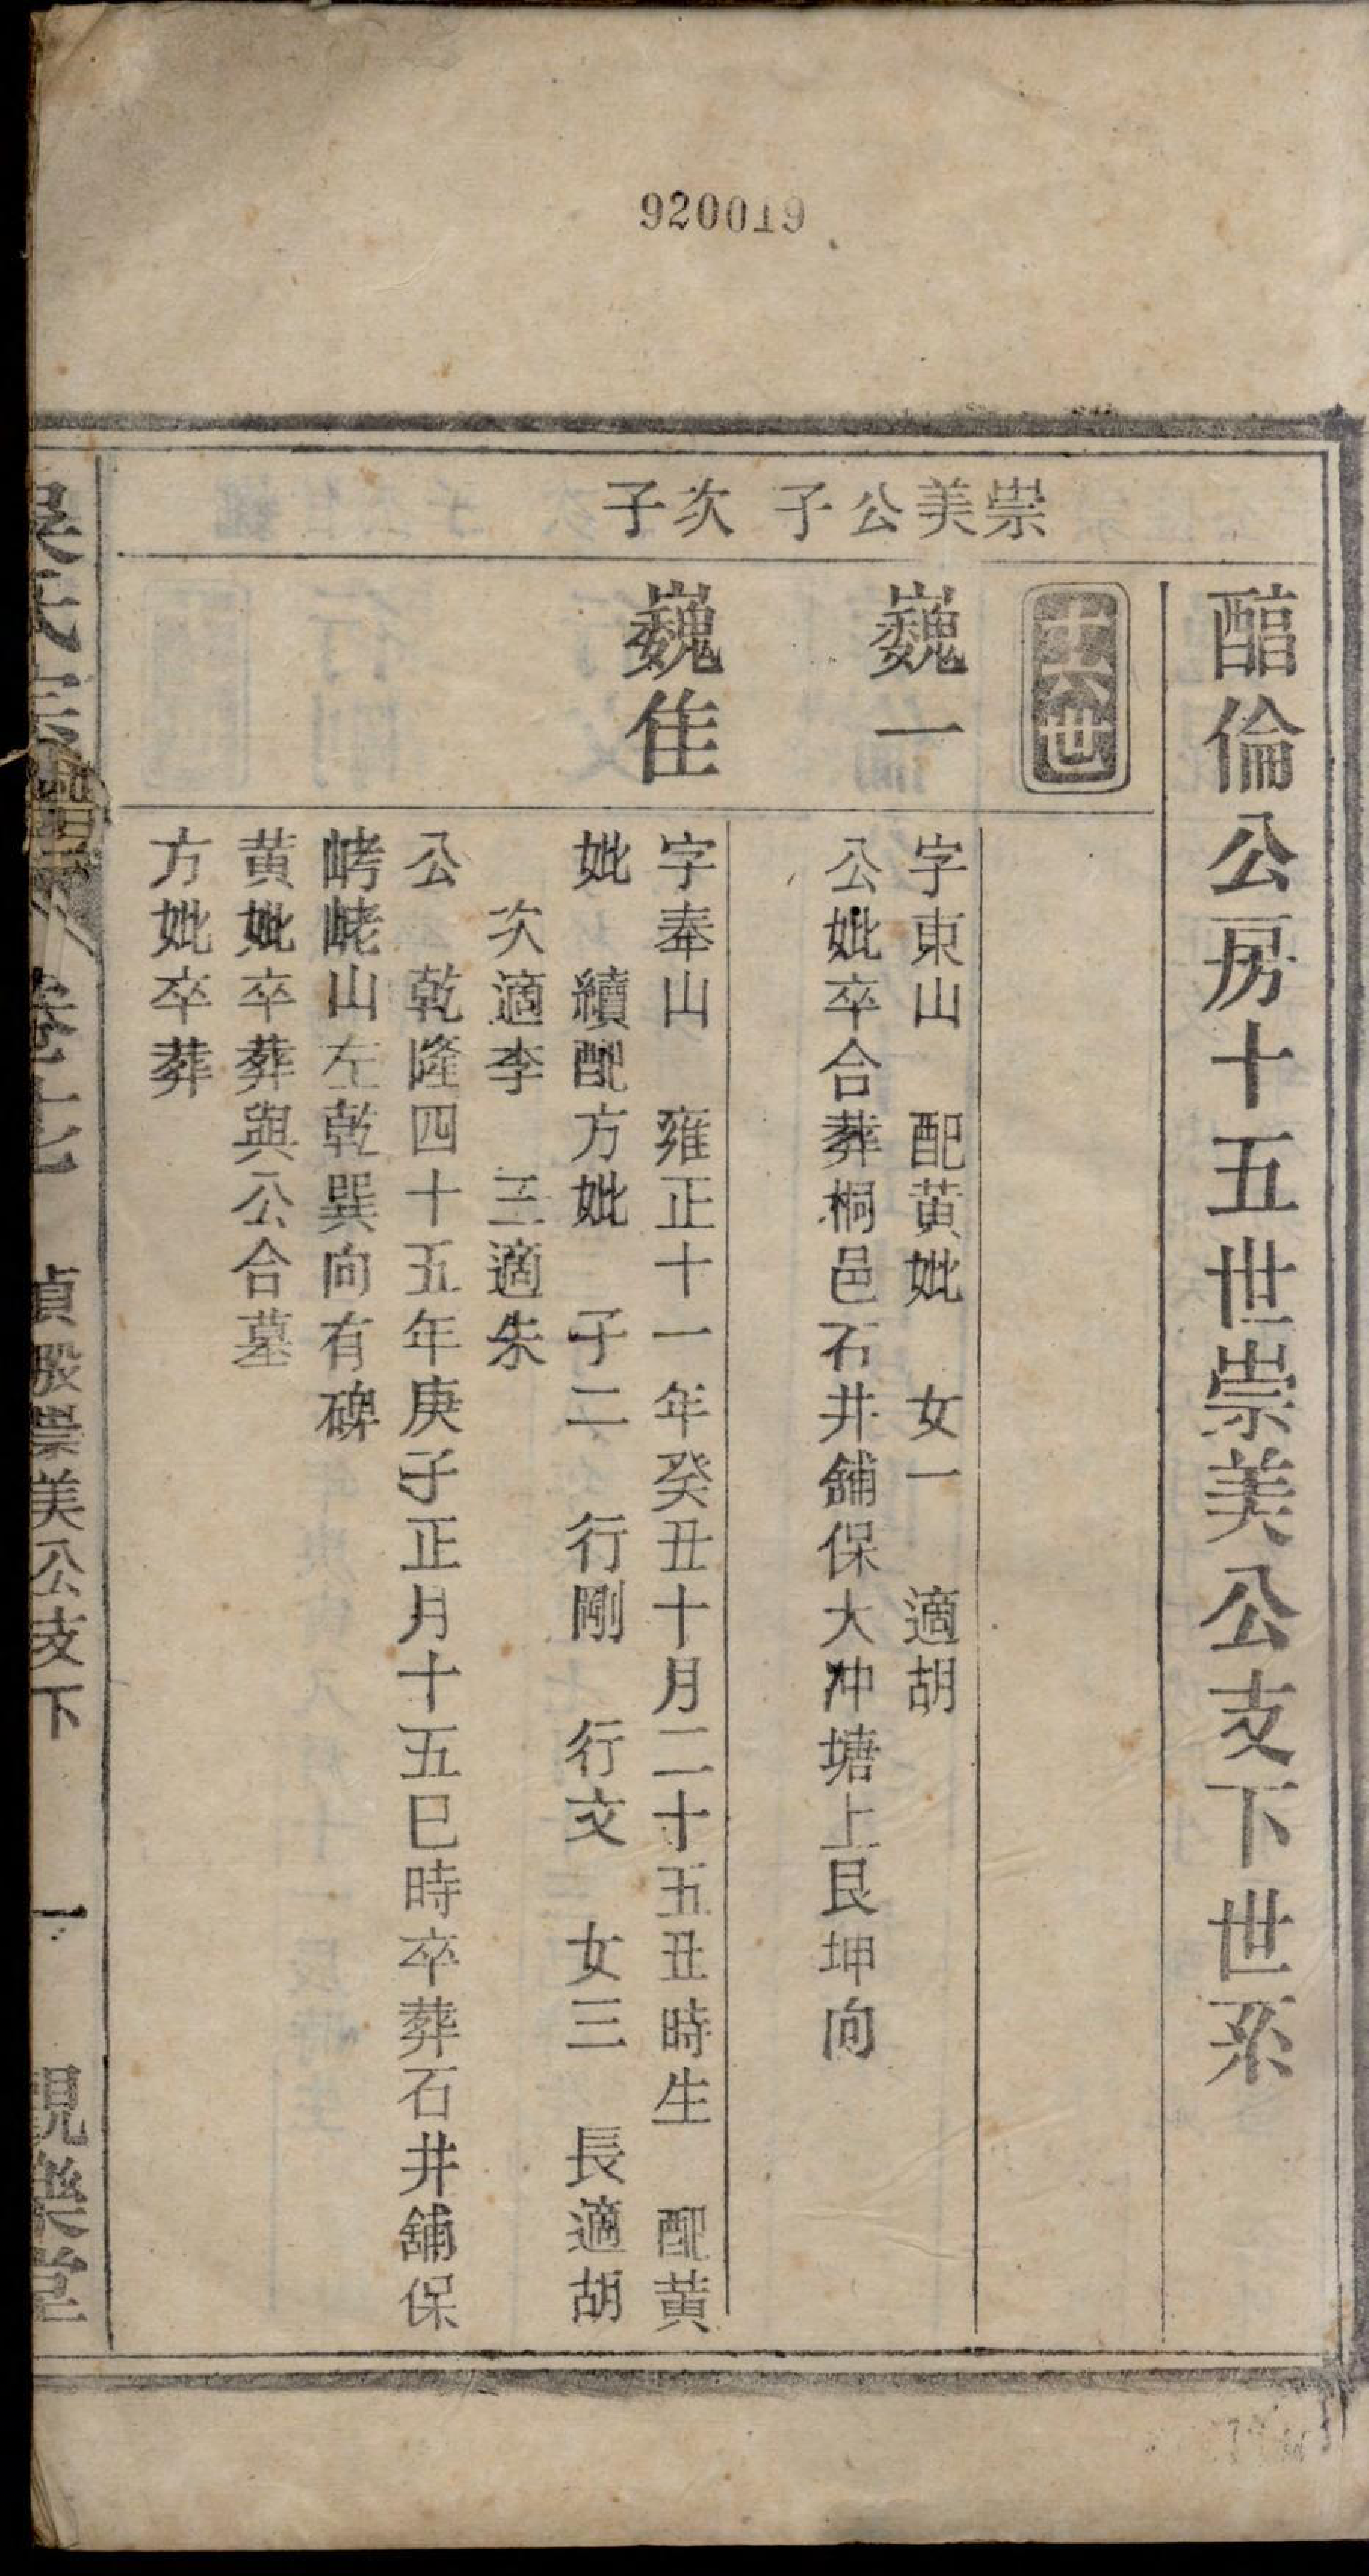 920019
醕倫公房十五世崇美公支下世系
十六世
崇美公子
巍一
字東山 配黃妣 女一 適胡
公妣卒合葬桐邑石井舖保大冲塘上艮坤向
次子
巍隹
字奉山 雍正十一年癸丑十月二十五丑時生 配黃
妣 續配方妣 子二 行剛 行文 女三 長適胡
次適李 三適朱
公 乾隆四十五年庚子正月十五巳時卒葬石井舖保
峔山左乾巽向有碑
黃妣卒葬與公合墓
方妣卒葬
吳氏宗譜 卷十七 貞股崇美公支下 一 親樂堂